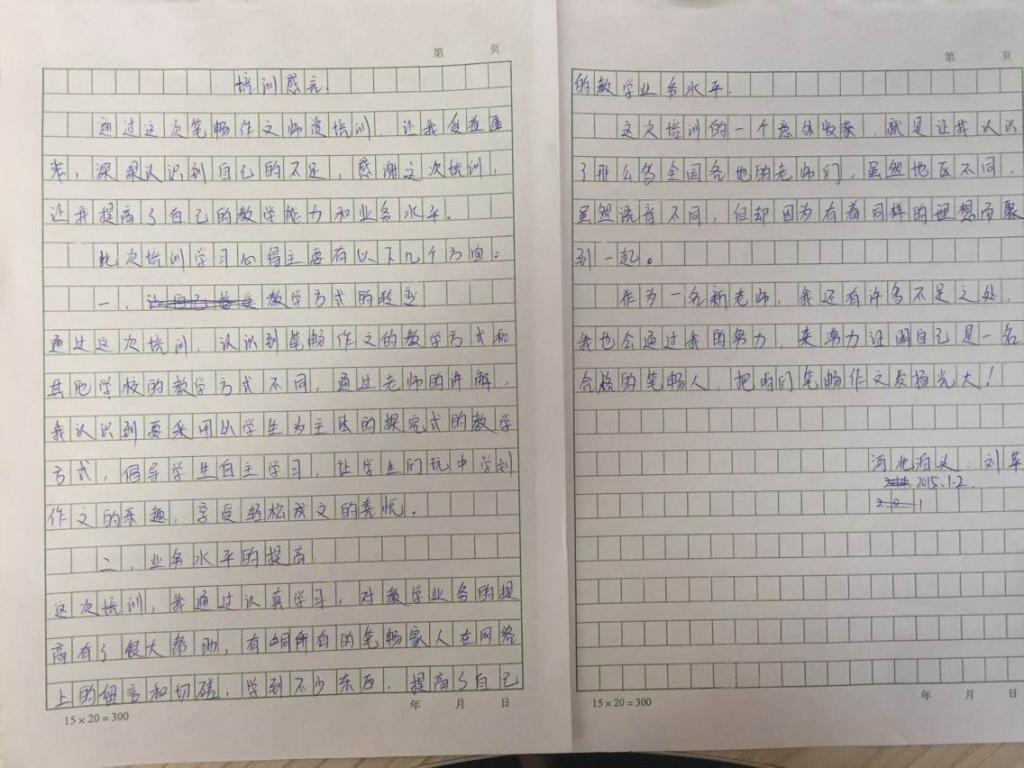 第 页
培训感言
通过这次笔畅作文师资培训，让我受益匪
浅，深深认识到自己的不足，感谢这次培训，
让我提高了自己的教学能力和业务水平。
此次培训学习心得主要有以下几个方面：
一、教学方式的转变
通过这次培训，认识到笔畅作文的教学方式和
其他学校的教学方式不同，通过老师的讲解，
我认识到要采用以学生为主体的探究式的教学
方式，倡导学生自主学习，让学生们玩中学到
作文的乐趣，享受轻松成文的喜悦。
二、业务水平的提高
这次培训，我通过认真学习，对教学业务的提
高有了很大帮助，有所有的笔畅家人在网络
上的和切磋，学到不少东西，提高了自己
15×20=300 年 月 日
第 页
的教学业务水平。
这次培训的一个意外收获，就是让我认识
了那么多全国各地的老师们，虽然地区不同，
虽然语音不同，但却因为有着同样的理想而聚
到一起。
作为一名新老师，我还有许多不足之处，
我也会通过我的努力，来努力证明自己是一名
合格的笔畅人，把咱们笔畅作文发扬光大！
河北泊头：刘华
2015.1.2
15×20=300 年 月 日